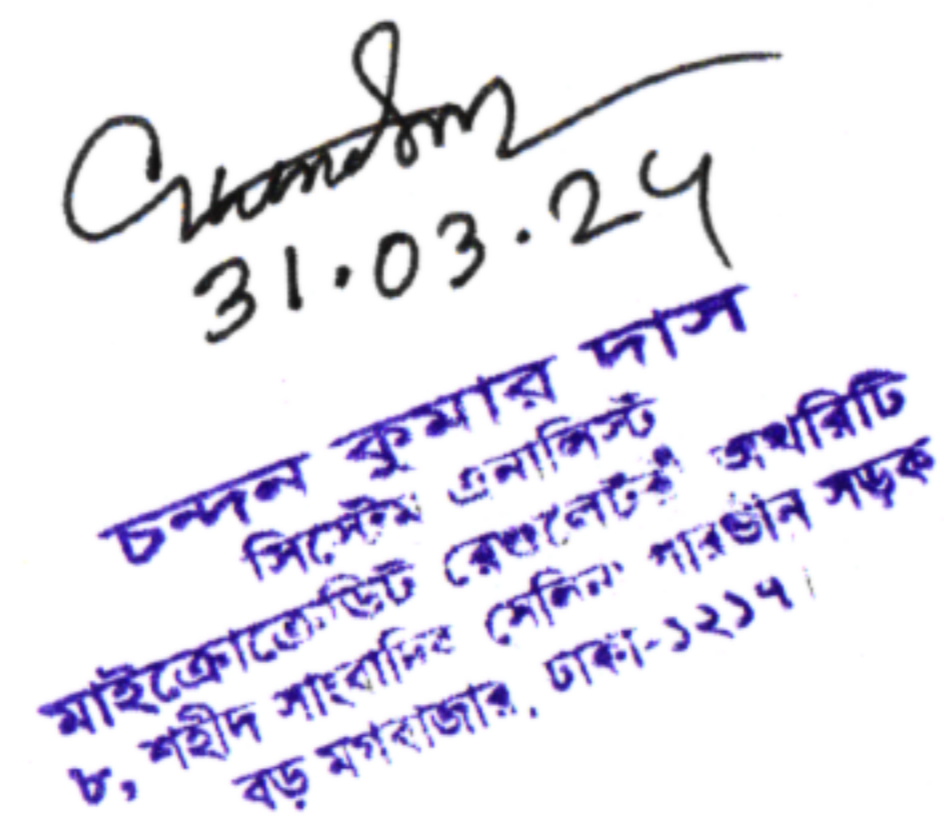 31.03.24
চন্দন কুমার দাস
সিস্টেম এনালিস্ট
মাইক্রোক্রেডিট রেগুলেটরী অথরিটি
৮, শহীদ সাংবাদিক সেলিনা পারভীন সড়ক
বড় মগবাজার, ঢাকা-১২১৭।